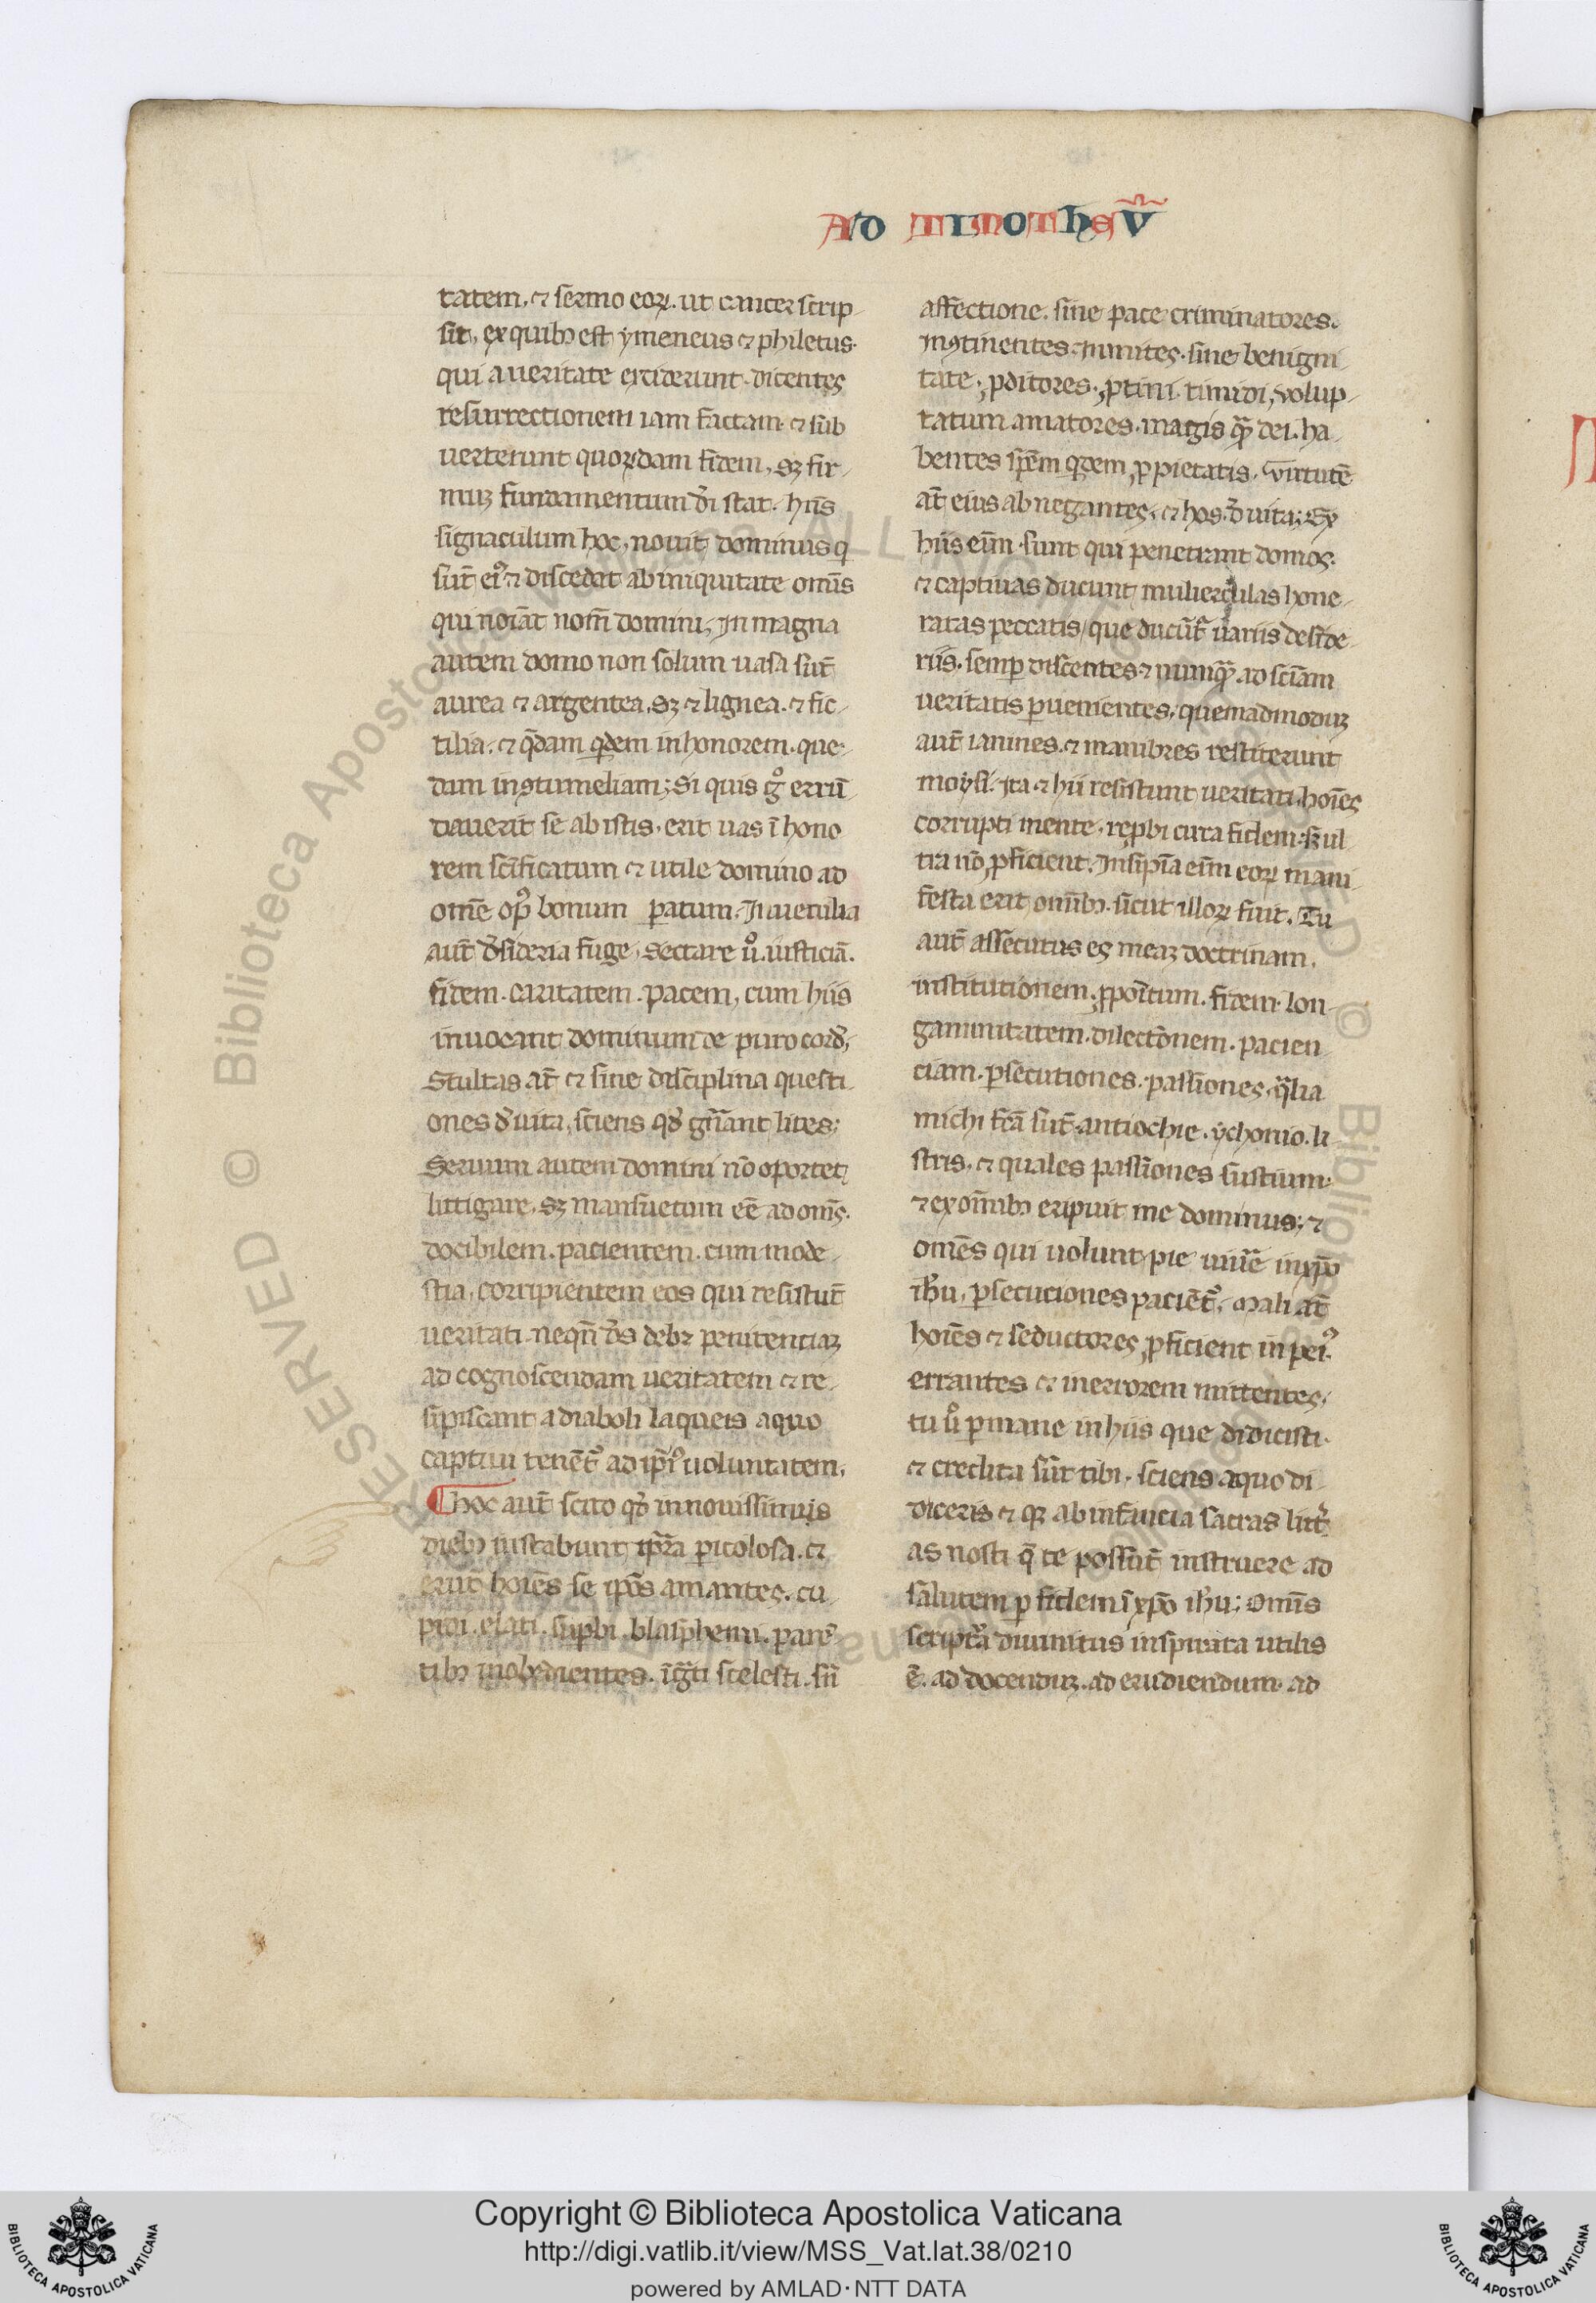 AD TIMOTHEV̄
tatem. ⁊ sermo eoꝝ. ut cancer scrip-
sit. ex quibꝫ est ymeneus ⁊ philetus.
qui a ueritate exciderunt. dicentes
resurrectionem iam factam. ⁊ sub
uerterunt quorꝝdam fidem, sꝫ fir-
muꝫ fundamentum dī stat. hn̄s
signaculum hoc, nouit dominus q̄
sūt eiꝰ ⁊ discedat ab iniquitate om̄s
qui noīat nom̄ domini, In magna
autem domo non solum uasa sūt
aurea ⁊ argentea, sꝫ ⁊ lignea. ⁊ fic-
tilia. ⁊ q̄dam qͥdem in honorem. que-
dam in ꝯtumeliam; Si quis gͦ emū-
dauerit se ab istis. erit uas ī hono
rem sc̄ificatum ⁊ utile domino ad
om̄e opꝰ bonum ꝑatum. Iuuenilia
aut̄ desideria fuge, Sectare ůͦ. iusticiā.
fidem. caritatem. pacem, cum hiis
inuocant dominum de puro corde,
Stultas at̄ ⁊ sine disciplina questi-
ones deuita, sciens qd̓ gn̄ant lites;
Seruum autem domini nō oportet
littigare, sꝫ mansuetum eē ad om̄s.
docibilem. pacientem. cum mode-
stia, corripientem eos qui resistūt
ueritati. neqn̄ ds̄ debꝫ penitenciaꝫ
ad cognoscendam ueritatem ⁊ re-
sipiscant a diaboli laqueis a quo
captiui tenēt᷑ ad ip̄iꝰ uoluntatem.
¶hoc aut̄ scito qd̓ in nouissimis
diebꝫ instabunt tp̄ra ꝑicolosa. ⁊
erūt hoīes se ip̄os amantes. cu-
pidi. elati. suꝑbi. blasphemi. parē-
tibꝫ inobedientes. īgͣti scelesti. sn̄
affectione. sine pace criminatores.
inꝯtinentes. inmites. sine benigni-
tate, ꝓditores. ꝓtini. timidi, volup-
tatum amatores. magis qͣꝫ dei. ha-
bentes sp̄em qͥdem ꝓ pietatis. virtutē
at̄ eius abnegantes. ⁊ hos deuita; Ex
hiis en̄im sunt qui penetrant domos.
⁊ captiuas ducunt mulierculas hone-
ratas peccatis, que ducūt᷑ uariis deside-
riis. semꝑ discentes ⁊ nunqͣꝫ ad sc̄iam
ueritatis ꝑuenientes, quemadmoduꝫ
aut̄ iannes. ⁊ mambres restiterunt
moysi. Ita ⁊ hii resistunt ueritati. hoīes
corrupti mente. reꝓbi circa fidem. sꝫ ul-
tra nō ꝓficient. Insipīa en̄im eoꝝ mani-
festa erit omībꝫ. sicut illoꝝ fuit. Tu
aut̄ assecutus es meaꝫ doctrinam.
institutionem. ꝓpoītum. fidem. lon-
ganimitatem. dilectōnem. pacien-
ciam. ꝑsecutiones. passiones, qͣlia
michi fc̄a sūt. antiochie. ychonio. li-
stris. ⁊ quales passiones sustinui.
⁊ ex omībꝫ eripuit me dominus; ⁊
om̄es qui uolunt pie uiuē in xp̄o
ih̄u, ꝑsecuciones paciēt᷑, Mali at̄
hoīes ⁊ seductores ꝓficient in peiꝰ
errantes ⁊ in errorem mittentes.
tu ůͦ ꝑmane in hiis que didicisti.
⁊ credita sūt tibi. sciens a quo di-
diceris ⁊ qꝛ ab infancia sacras litt̄-
as nosti q̄ te possūt instruere ad
salutem ꝑ fidem ī xp̄o ih̄u; Om̄is
scriptͣa diuinitus inspirata utilis
ē. ad docenduꝫ. ad erudiendum. ad
Copyright © Biblioteca Apostolica Vaticana
http://digi.vatlib.it/view/MSS_Vat.lat.38/0210
powered by AMLAD·NTT DATA